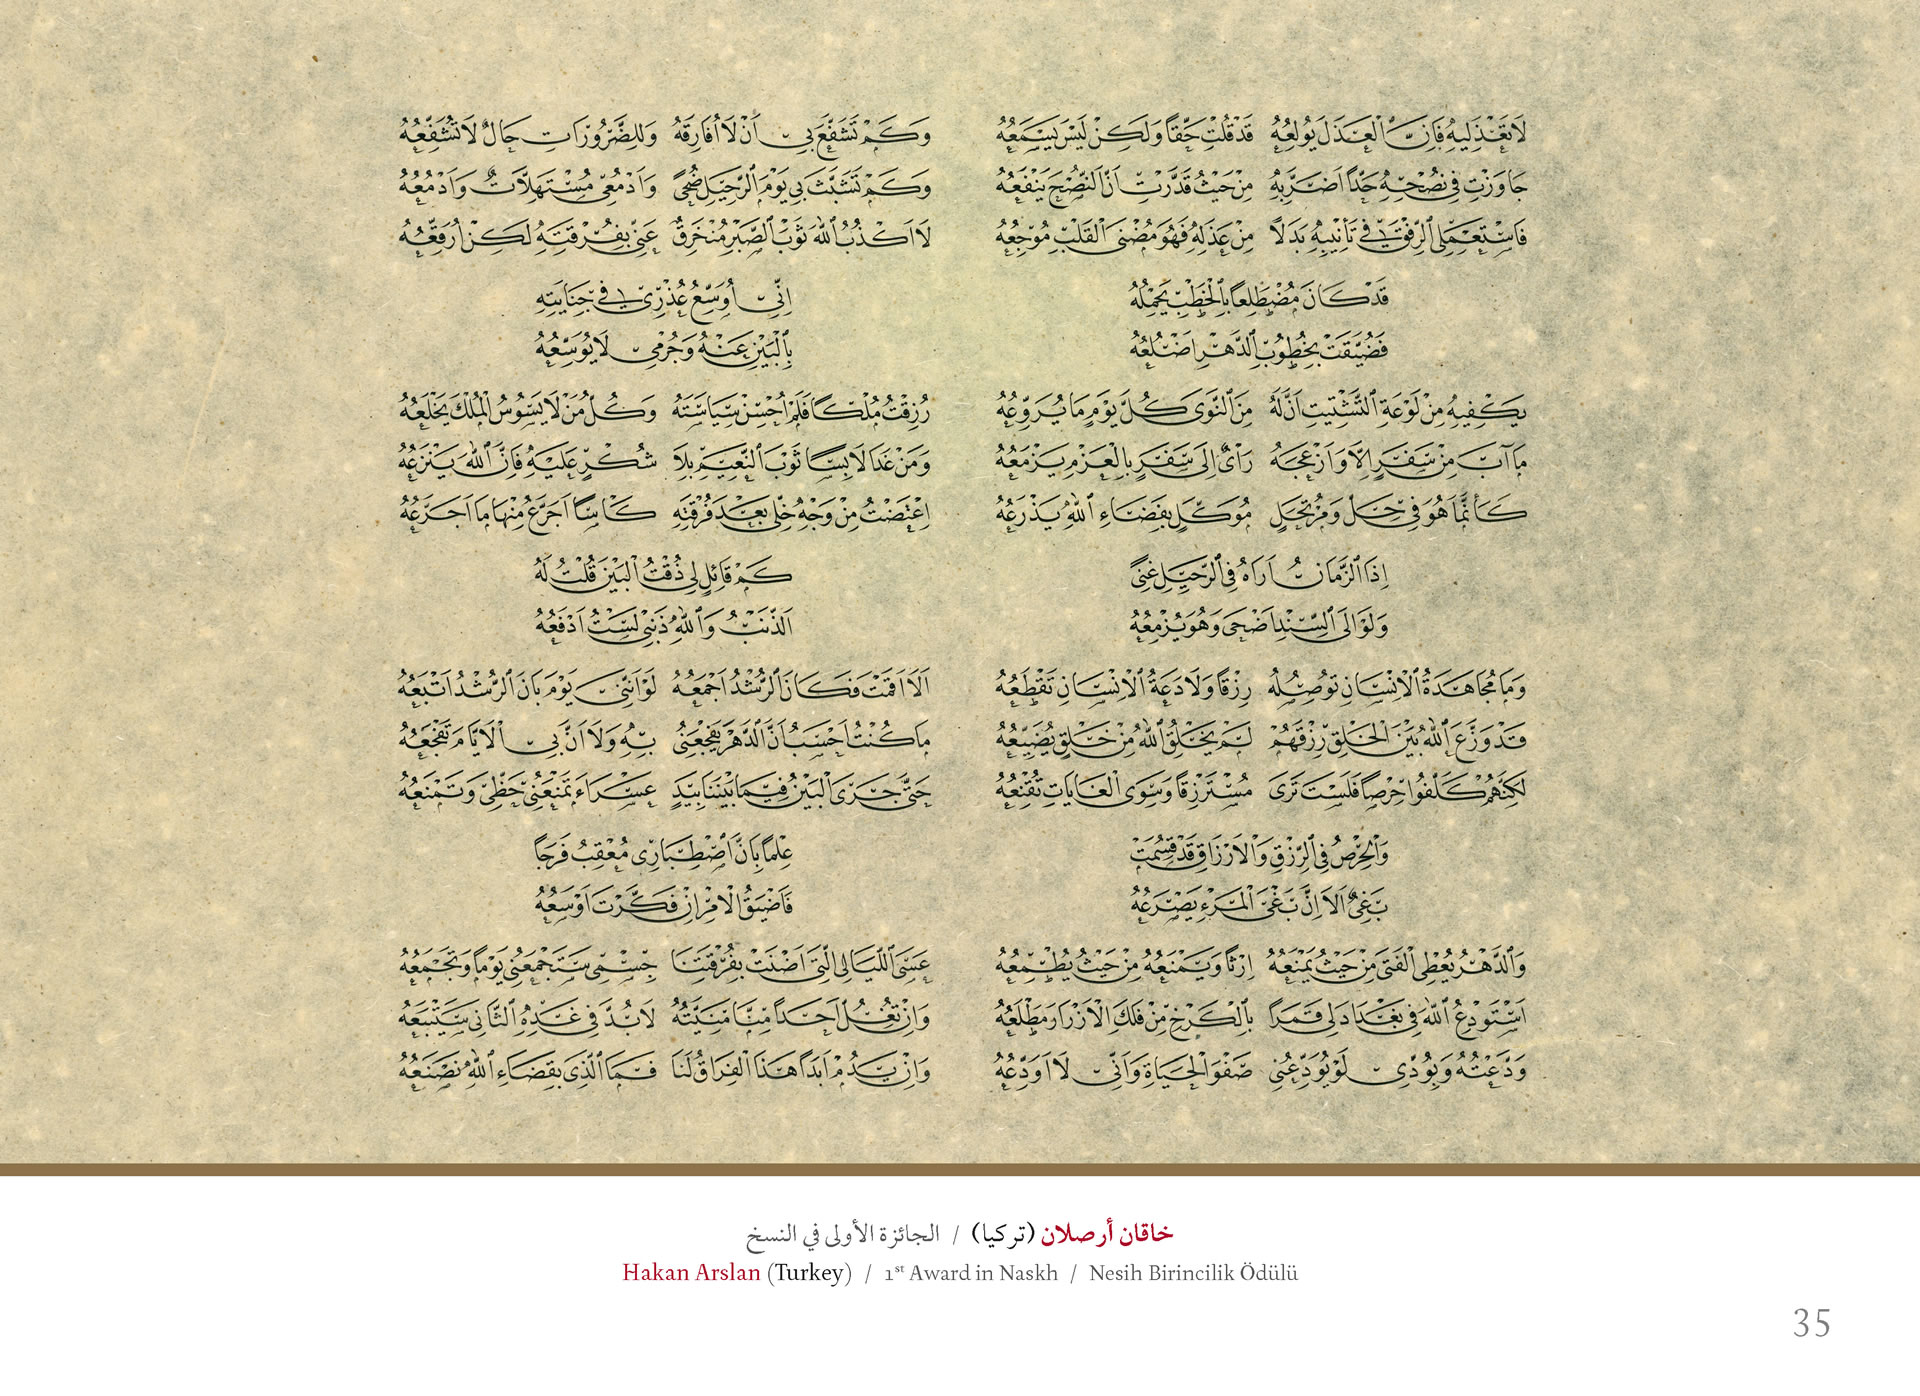 لَا تَعْذُلِيهِ فَاِنَّ الْعَذْلَ يُولِعُهُ قَدْ قُلْتِ حَقًّا وَلَكِنْ لَيْسَ يَسْمَعُهُ
جَاوَزْتِ فِي نُصْحِهِ حَدًّا اَضَرَّ بِهِ مِنْ حَيْثُ قَدَّرْتِ اَنَّ النُّصْحَ يَنْفَعُهُ
فَاسْتَعْمِلِي الرِّفْقَ فِي تَأْنِيبِهِ بَدَلًا مِنْ عَذْلِهِ فَهُوَ مُضْنَى الْقَلْبِ مُوجَعُهُ
قَدْ كَانَ مُضْطَلِعًا بِالْخَطْبِ يَحْمِلُهُ
فَضُيِّقَتْ بِخُطُوبِ الدَّهْرِ اَضْلُعُهُ
يَكْفِيهِ مِنْ لَوْعَةِ التَّشْتِيتِ اَنَّ لَهُ مِنَ النَّوَى كُلَّ يَوْمٍ مَا يُرَوِّعُهُ
مَا آبَ مِنْ سَفَرٍ اِلَّا وَاَزْعَجَهُ رَأْيٌ اِلَى سَفَرٍ بِالْعَزْمِ يَزْمَعُهُ
كَاَنَّمَا هُوَ فِي حِلٍّ وَمُرْتَحَلٍ مُوَكَّلٍ بِفَضَاءِ اللهِ يَذْرَعُهُ
اِذَا الزَّمَانُ اَرَاهُ فِي الرَّحِيلِ غِنًى
وَلَوْ اِلَى السِّنْدِ اَضْحَى وَهُوَ يُزْمِعُهُ
وَمَا مُجَاهَدَةُ الْاِنْسَانِ تُوصِلُهُ رِزْقًا وَلَا دَعَةُ الْاِنْسَانِ تَقْطَعُهُ
قَدْ وَزَّعَ اللهُ بَيْنَ الْخَلْقِ رِزْقَهُمُ لَمْ يَخْلُقِ اللهُ مِنْ خَلْقٍ يُضَيِّعُهُ
لَكِنَّهُمْ كُلِّفُوا حِرْصًا فَلَسْتَ تَرَى مُسْتَرْزِقًا وَسِوَى الْغَايَاتِ تُقْنِعُهُ
وَالْحِرْصُ فِي الرِّزْقِ وَالْاَرْزَاقُ قَدْ قُسِمَتْ
بَغْيٌ اَلَا اِنَّ بَغْيَ الْمَرْءِ يَصْرَعُهُ
وَالدَّهْرُ يُعْطِي الْفَتَى مِنْ حَيْثُ يَمْنَعُهُ اِرْثًا وَيَمْنَعُهُ مِنْ حَيْثُ يُطْمِعُهُ
اَسْتَوْدِعُ اللهَ فِي بَغْدَادَ لِي قَمَرًا بِالْكَرْخِ مِنْ فَلَكِ الْاَزْرَارِ مَطْلَعُهُ
وَدَّعْتُهُ وَبِوُدِّي لَوْ يُوَدِّعُنِي صَفْوُ الْحَيَاةِ وَاَنِّي لَا اُوَدِّعُهُ
وَكَمْ تَشَفَّعَ بِي اَنْ لَا اُفَارِقَهُ وَلِلضَّرُورَاتِ حَالٌ لَا تُشَفِّعُهُ
وَكَمْ تَشَبَّثَ بِي يَوْمَ الرَّحِيلِ ضُحًى وَاَدْمُعِي مُسْتَهِلَّاتٌ وَاَدْمُعُهُ
لَا اَكْذِبُ اللهَ ثَوْبُ الصَّبْرِ مُنْخَرِقٌ عَنِّي بِفُرْقَتِهِ لَكِنْ اُرَقِّعُهُ
اِنِّي اُوَسِّعُ عُذْرِي فِي جِنَايَتِهِ
بِالْبَيْنِ عَنْهُ وَجُرْمِي لَا يُوَسِّعُهُ
رُزِقْتُ مُلْكًا فَلَمْ اُحْسِنْ سِيَاسَتَهُ وَكُلُّ مَنْ لَا يَسُوسُ الْمُلْكَ يَخْلَعُهُ
وَمَنْ غَدَا لَابِسًا ثَوْبَ النَّعِيمِ بِلَا شُكْرٍ عَلَيْهِ فَاِنَّ اللهَ يَنْزِعُهُ
اِعْتَضْتُ مِنْ وَجْهِ خِلِّي بَعْدَ فُرْقَتِهِ كَاْسًا اُجَرَّعُ مِنْهَا مَا اُجَرَّعُهُ
كَمْ قَائِلٍ لِي ذُقْتَ الْبَيْنَ قُلْتُ لَهُ
اَلذَّنْبُ وَاللهِ ذَنْبِي لَسْتُ اَدْفَعُهُ
اَلَا اَقَمْتَ فَكَانَ الرُّشْدُ اَجْمَعُهُ لَوْ اَنَّنِي يَوْمَ بَانَ الرُّشْدُ اَتْبَعُهُ
مَا كُنْتُ اَحْسَبُ اَنَّ الدَّهْرَ يَفْجَعُنِي بِهِ وَلَا اَنَّ بِي الْاَيَّامَ تَفْجَعُهُ
حَتَّى جَرَى الْبَيْنُ فِيمَا بَيْنَنَا بِيَدٍ عَسْرَاءَ تَمْنَعُنِي حَظِّي وَتَمْنَعُهُ
عِلْمًا بِاَنَّ اصْطِبَارِي مُعْقِبٌ فَرَجًا
فَاَضْيَقُ الْاَمْرِ اِنْ فَكَّرْتَ اَوْسَعُهُ
عَسَى اللَّيَالِي الَّتِي اَضْنَتْ بِفُرْقَتِنَا جِسْمِي سَتَجْمَعُنِي يَوْمًا وَتَجْمَعُهُ
وَاِنْ تَغُلْ اَحَدًا مِنَّا مَنِيَّتُهُ لَابُدَّ فِي غَدِهِ الثَّانِي سَيَتْبَعُهُ
وَاِنْ يَدُمْ اَبَدًا هَذَا الْفِرَاقُ لَنَا فَمَا الَّذِي بِقَضَاءِ اللهِ نَصْنَعُهُ
خاقان أرصلان (تركيا) / الجائزة الأولى في النسخ
Hakan Arslan (Turkey) / 1st Award in Naskh / Nesih Birincilik Ödülü
35